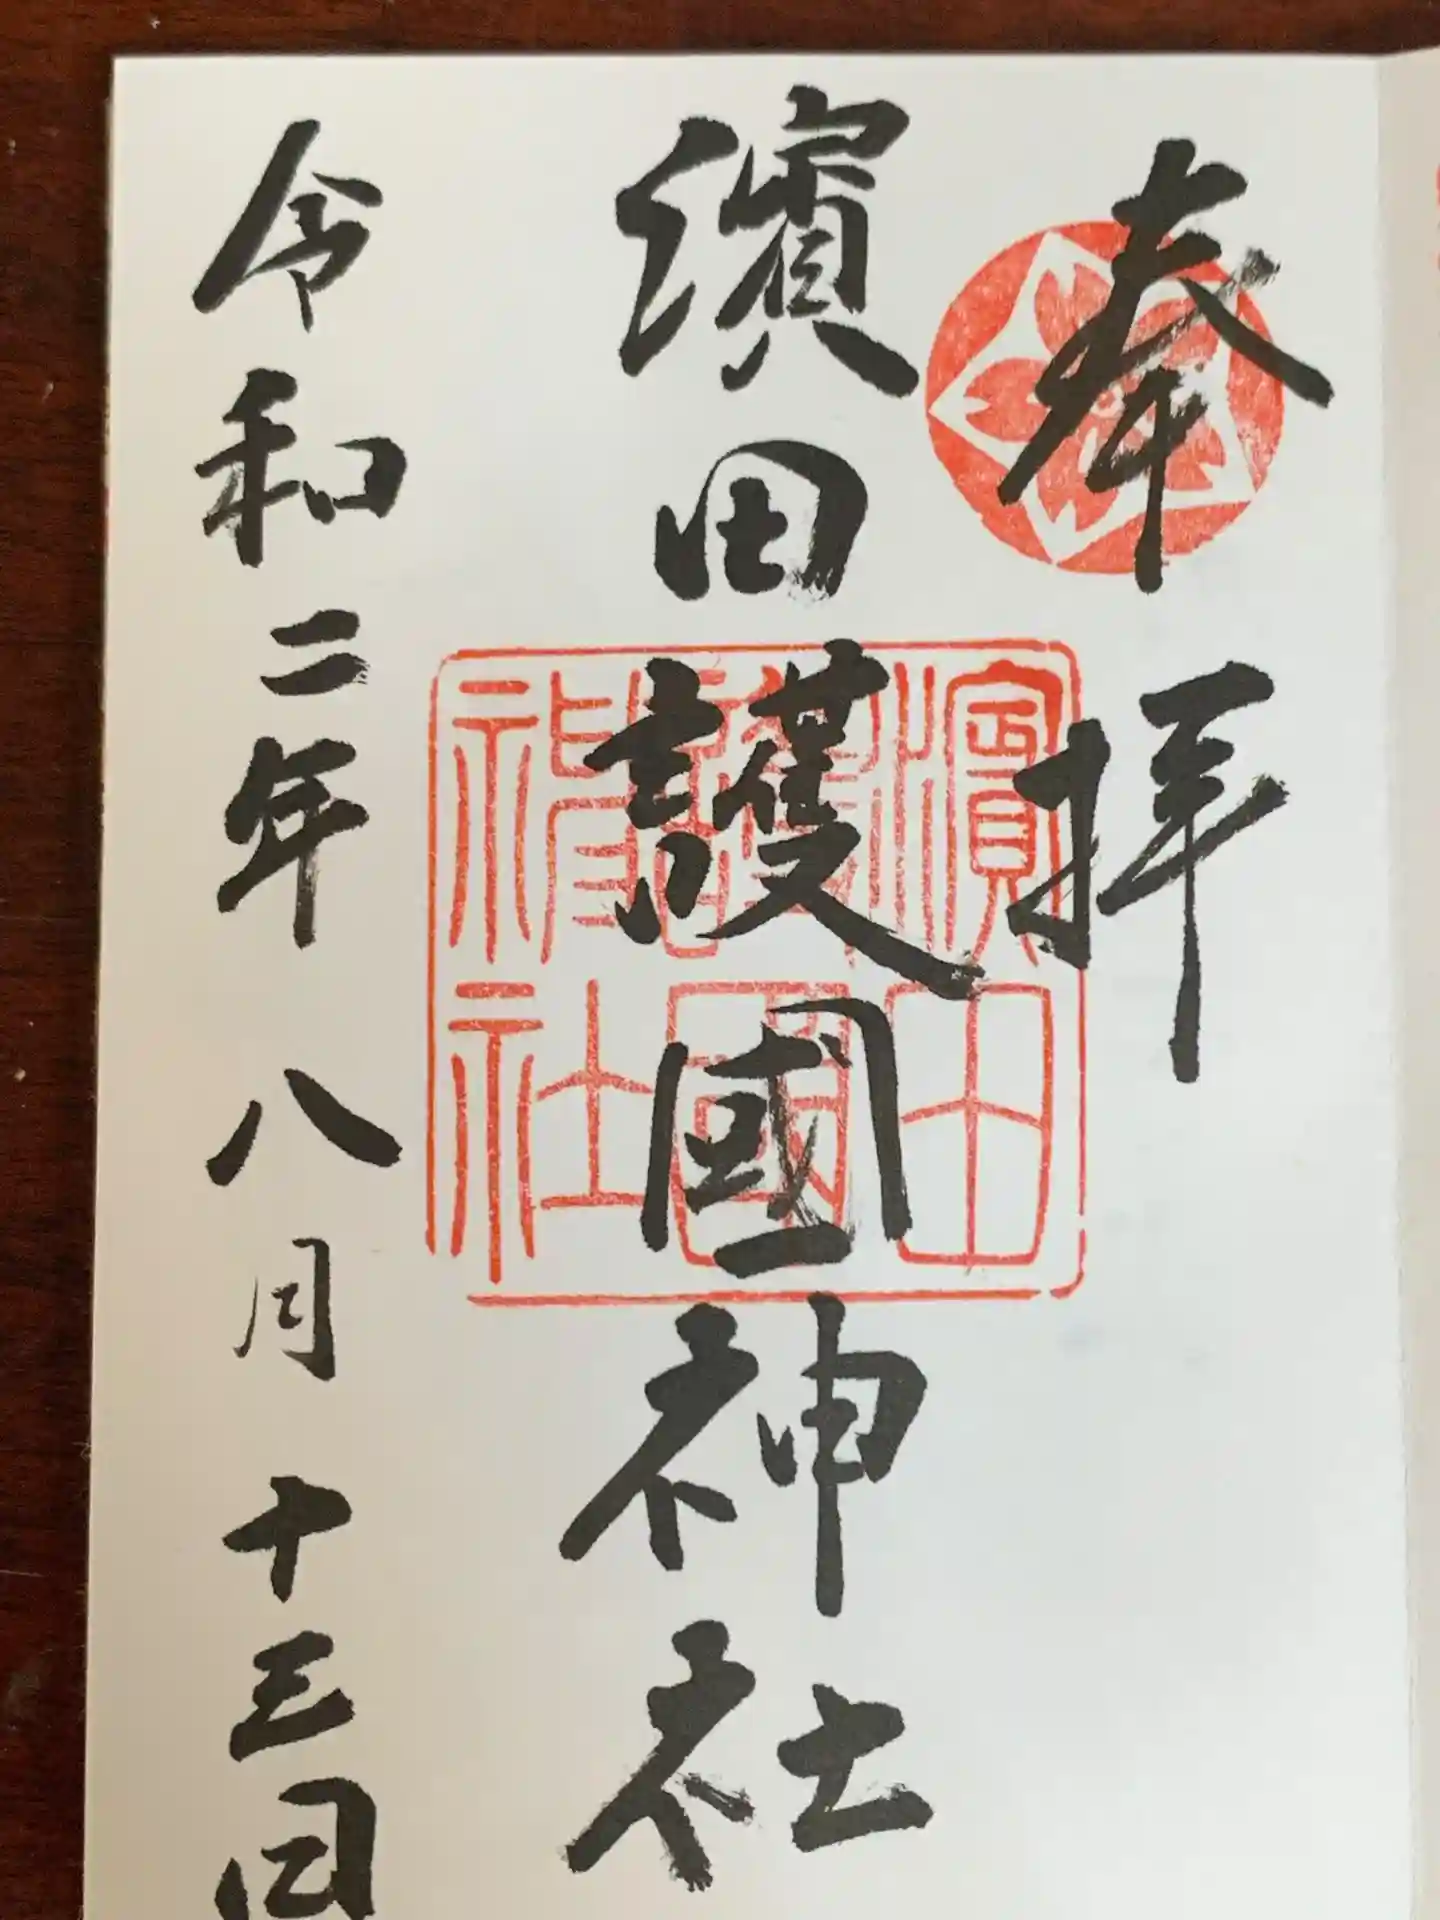 奉拝
濱田護國神社
濱田
護國
神社
令和二年八月十三日